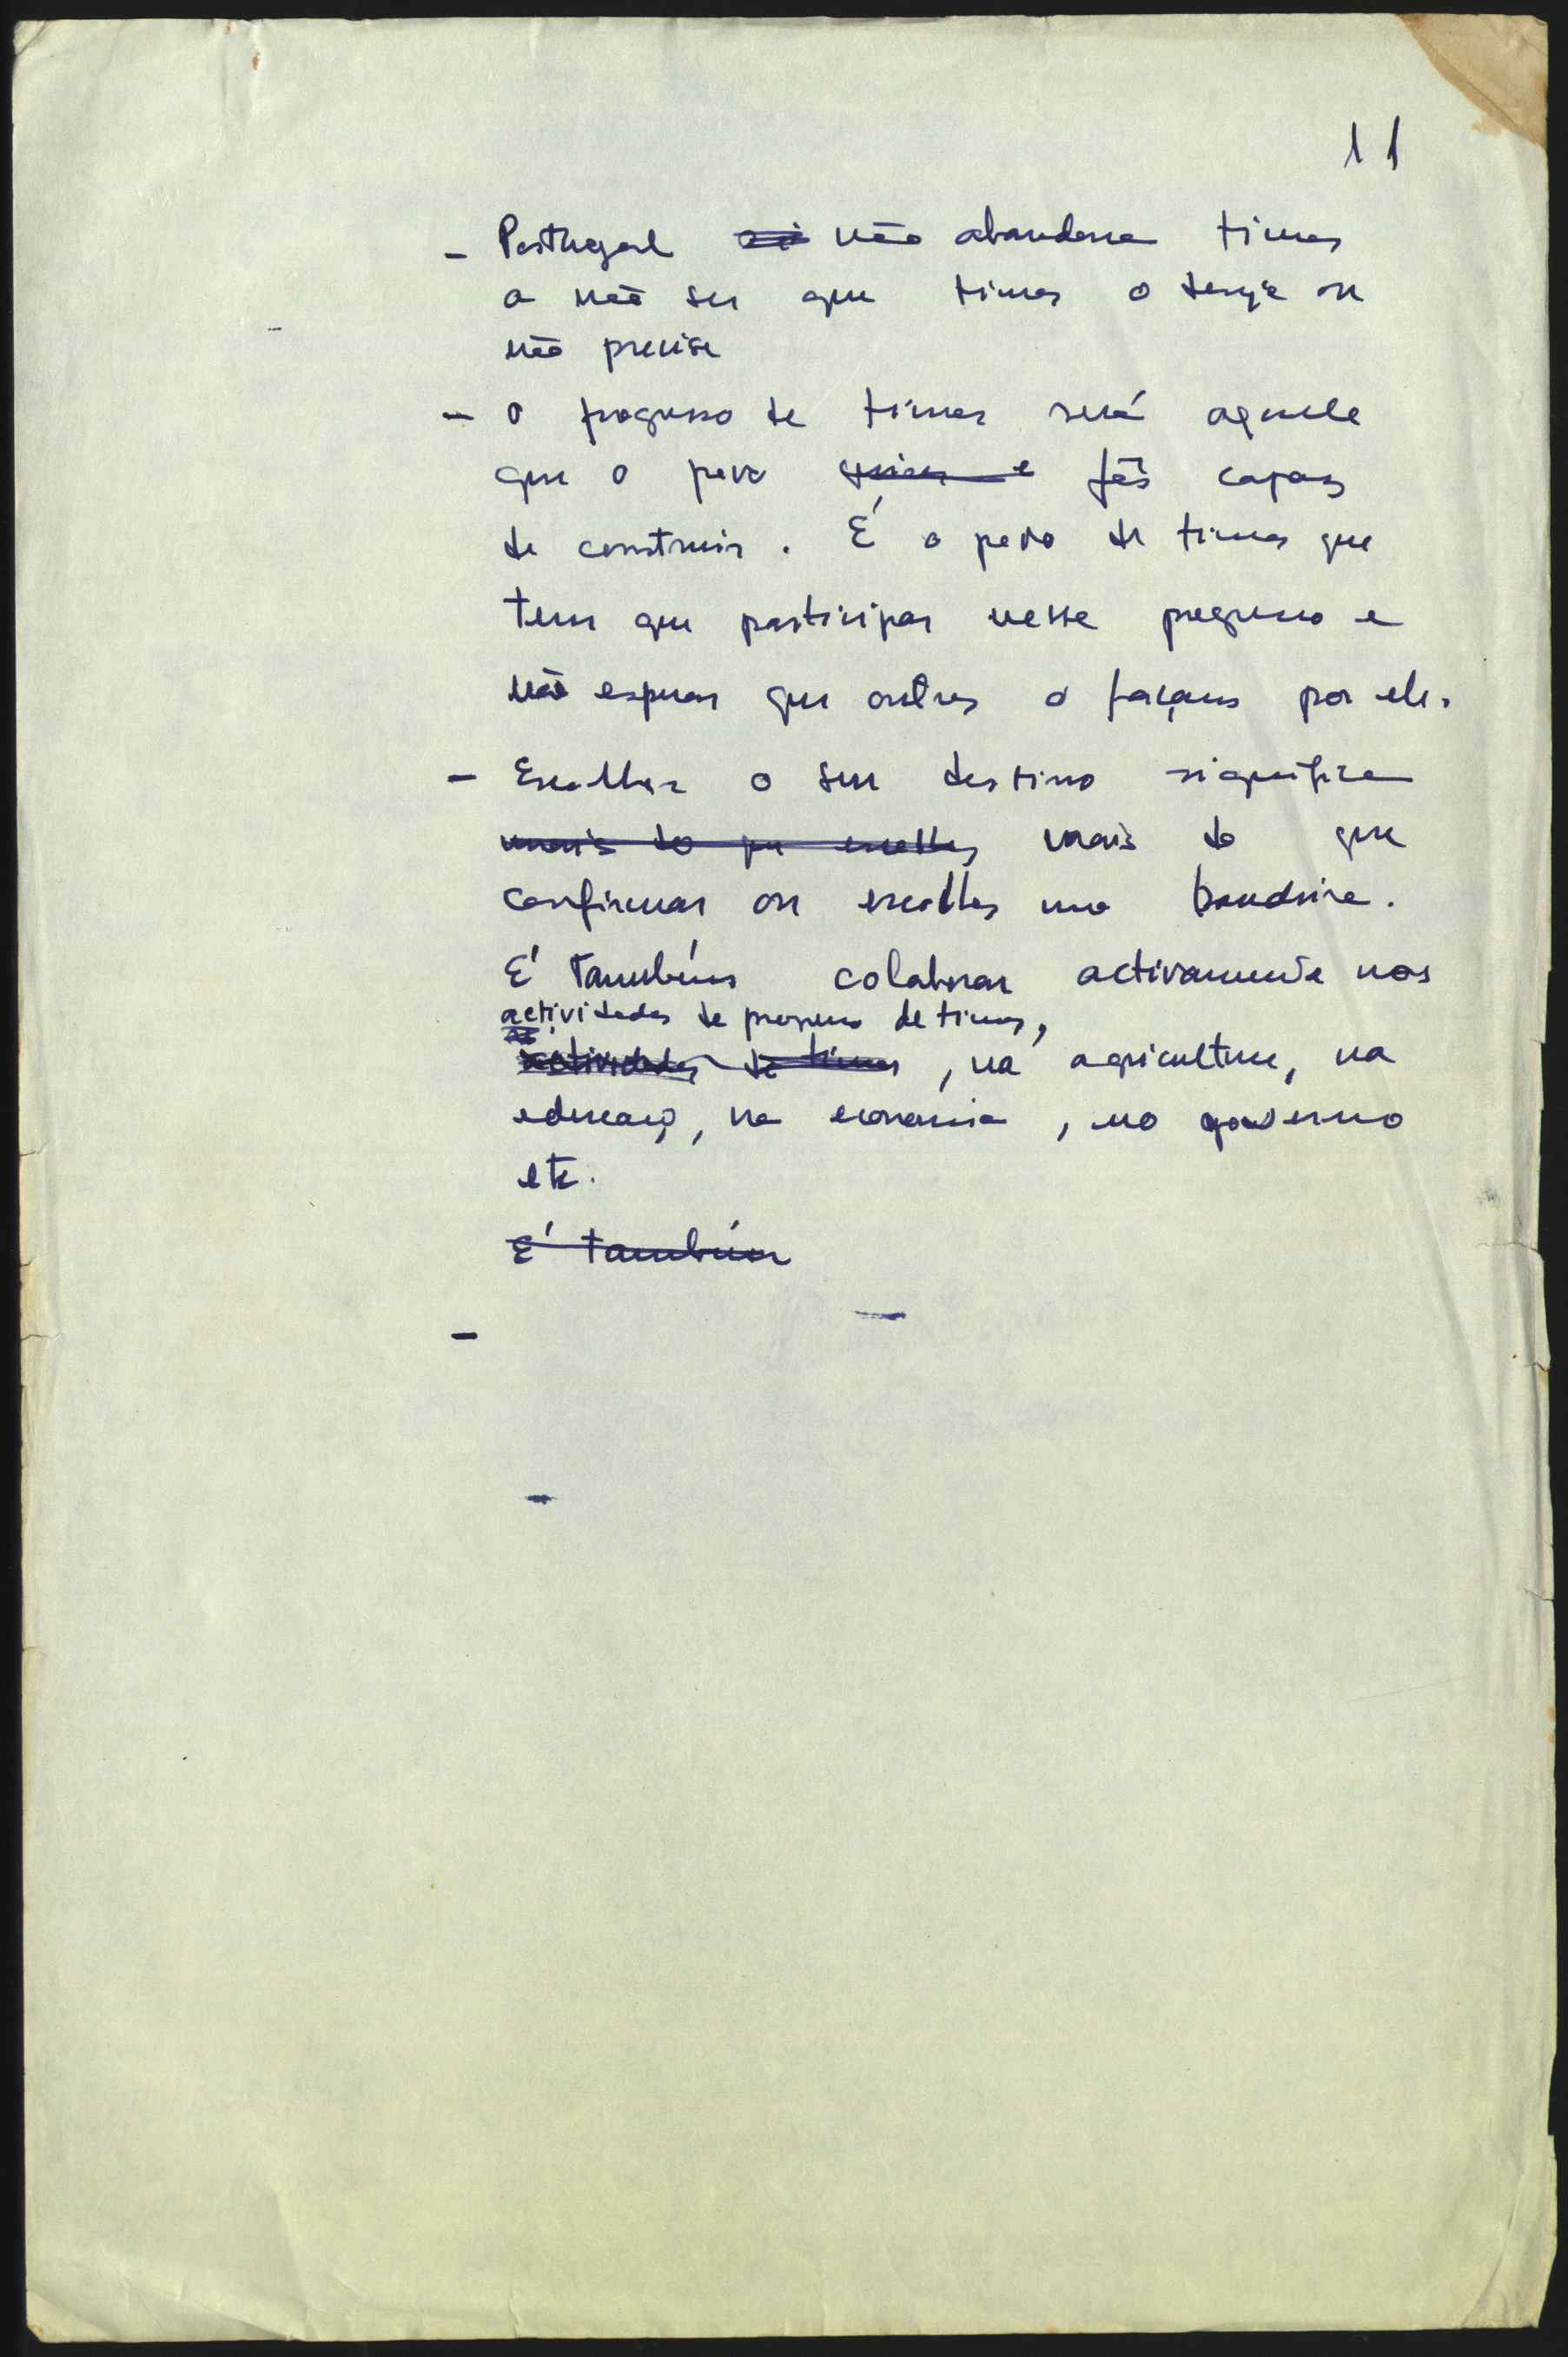 11
- Portugal não abandona timor
a não ser que timor o deseje ou
não precise
- O progresso de timor será aquele
que o povo fôr capaz
de construir. É o povo de timor que
tem que participar nesse progresso e
não esperar que outros o façam por ele.
- Escolher o seu destino significa
mais do que escolher mais do que
confirmar ou escolher uma bandeira.
É também colaborar activamente nas
actividades de progresso de timor,
actividades de timor, na agricultura, na
educação, na economia, no governo
etc.
É também
-